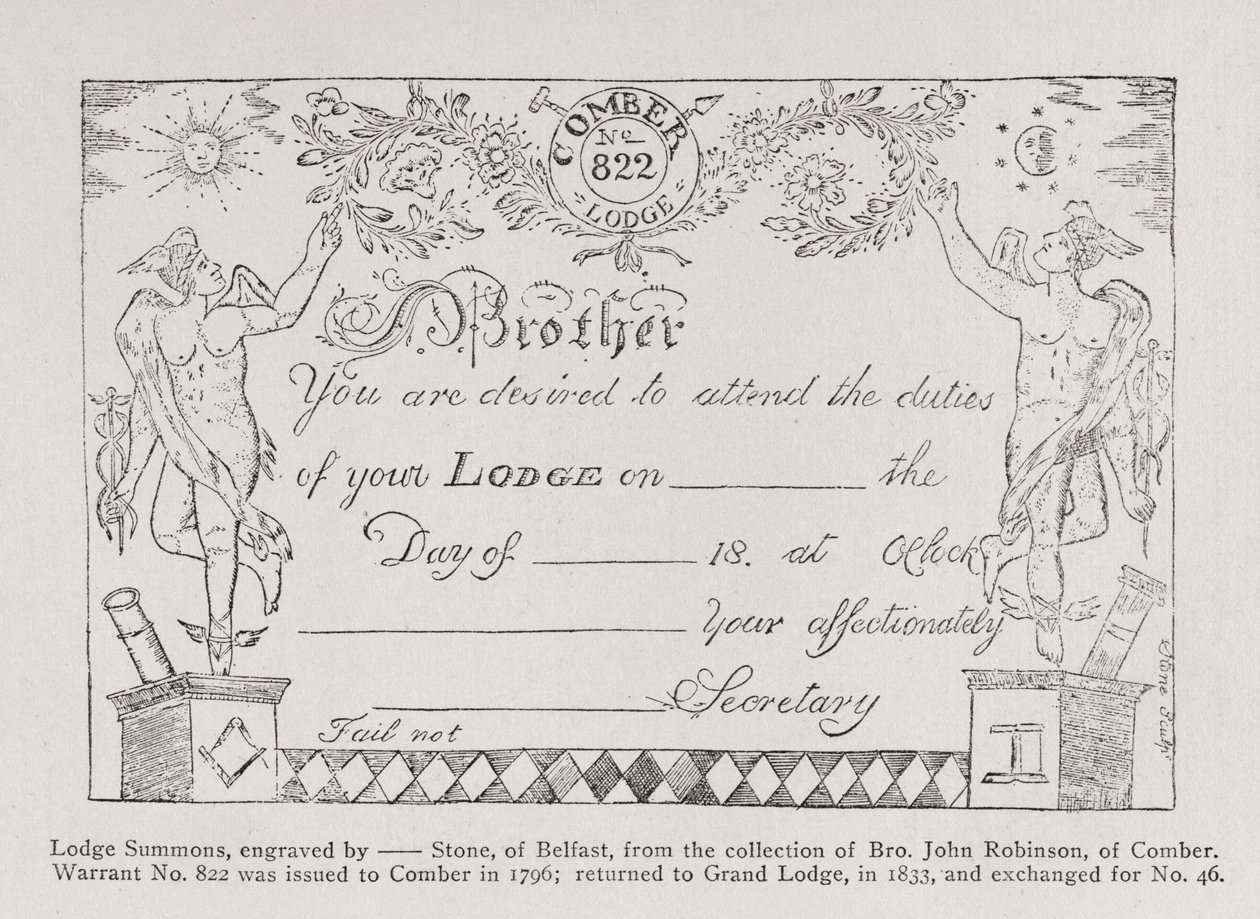 COMBER
No
822
LODGE
Brother
You are desired to attend the duties
of your LODGE on __________ the
Day of __________ 18. at OClock
__________ Your affectionately
__________ Secretary
Fail not
Stone Sculp
Lodge Summons, engraved by —— Stone, of Belfast, from the collection of Bro. John Robinson, of Comber.
Warrant No. 822 was issued to Comber in 1796; returned to Grand Lodge, in 1833, and exchanged for No. 46.